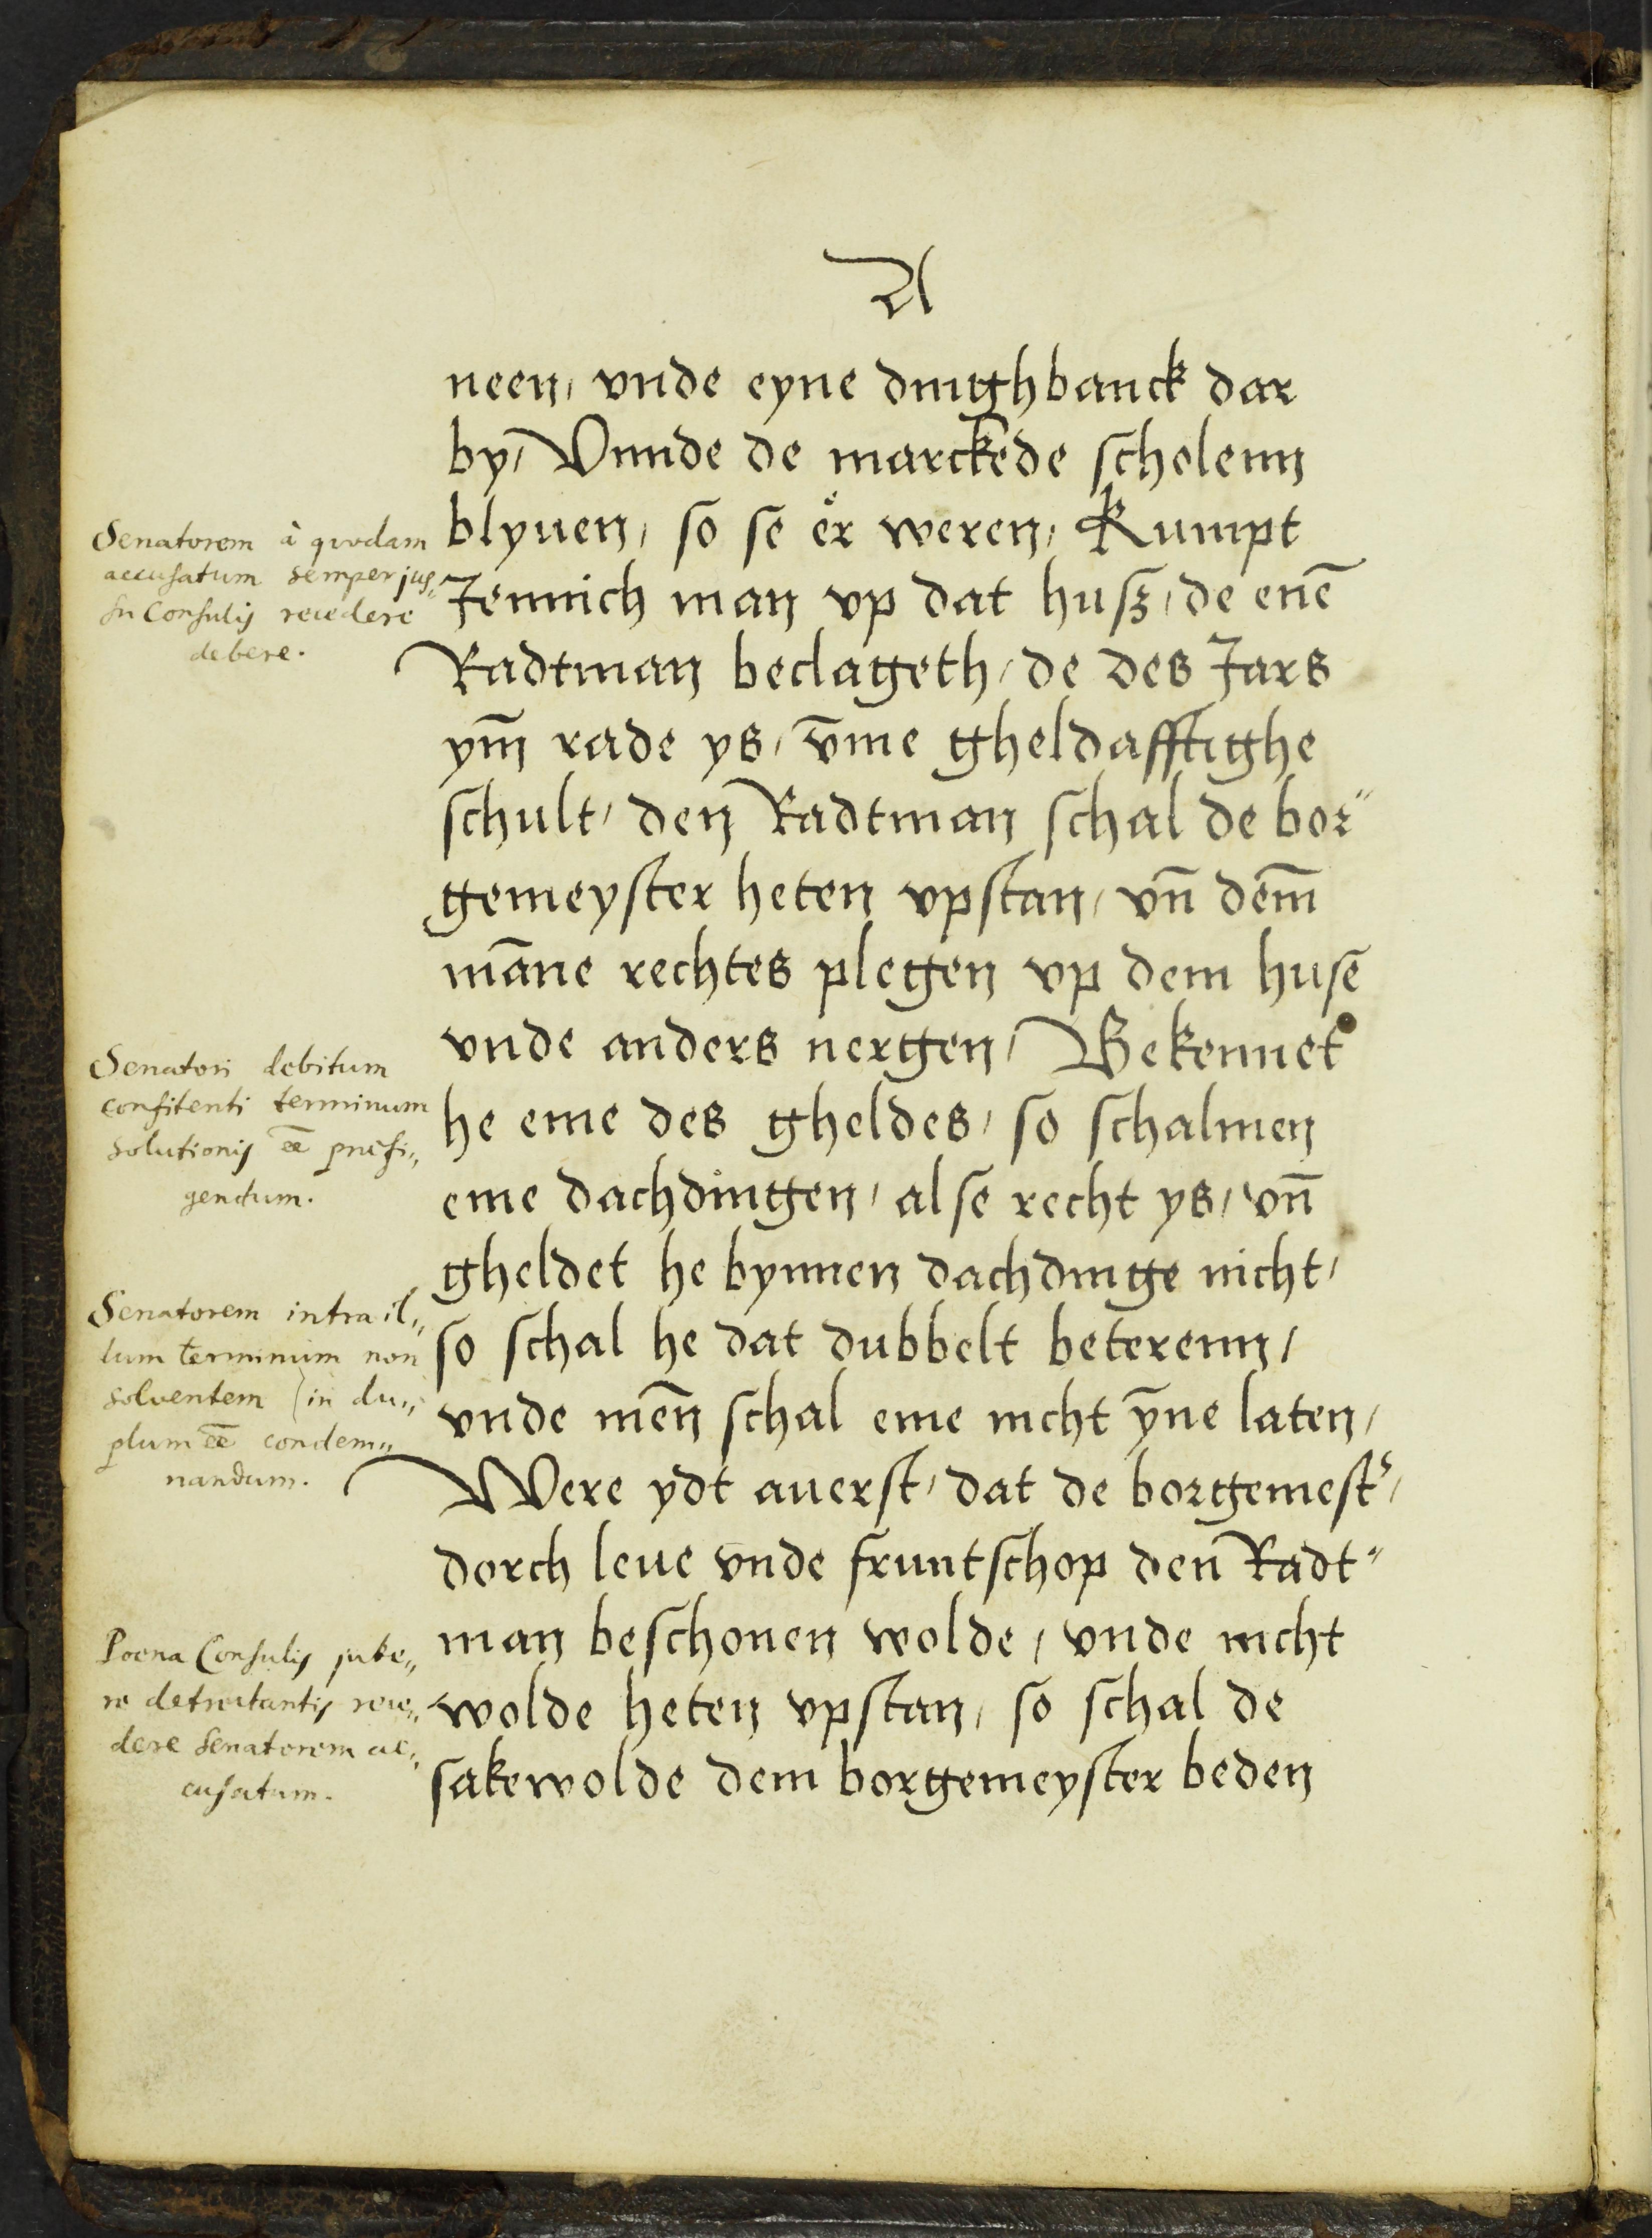 A
neen, vnde eyne dinghbanck dar
by, Vnnde de marckede scholenn
blyuen, so se er weren, Kumpt
Jennich man vp dat husz, de enē
Radtman beclageth, de des Jars
ym̄ rade ys, v̄me gheldafftighe
schult, den Radtman schal de bor"
gemeyster heten vpstan, vn̄ dem̄
māne rechtes plegen vp dem husē
vnde anders nergen, Bekennet
he eme des gheldes, so schalmen
eme dachdingen, alse recht ys, vn̄
gheldet he bynnen dachdinge nicht,
so schal he dat dubbelt beterenn,
vnde men̄ schal eme nicht ȳne laten,
Were ydt auerst, dat de borgemest',
dorch leue vnde fruntschop den Radt"
man beschonen wolde, vnde nicht
wolde heten vpstan, so schal de
sakewolde dem borgemeyster beden
Senatorem à quodam
accusatum semper jus„
su Consulis recedere
debere.
Senatori debitum
confitenti terminum
solutionis ēē præfi„
gendum.
Senatorem intra il„
lum terminum non
solventem in du„
plum ēē condem„
nandum.
Poena Consulis jube„
re detrectantis rece„
dere Senatorem ac„
cusatum.